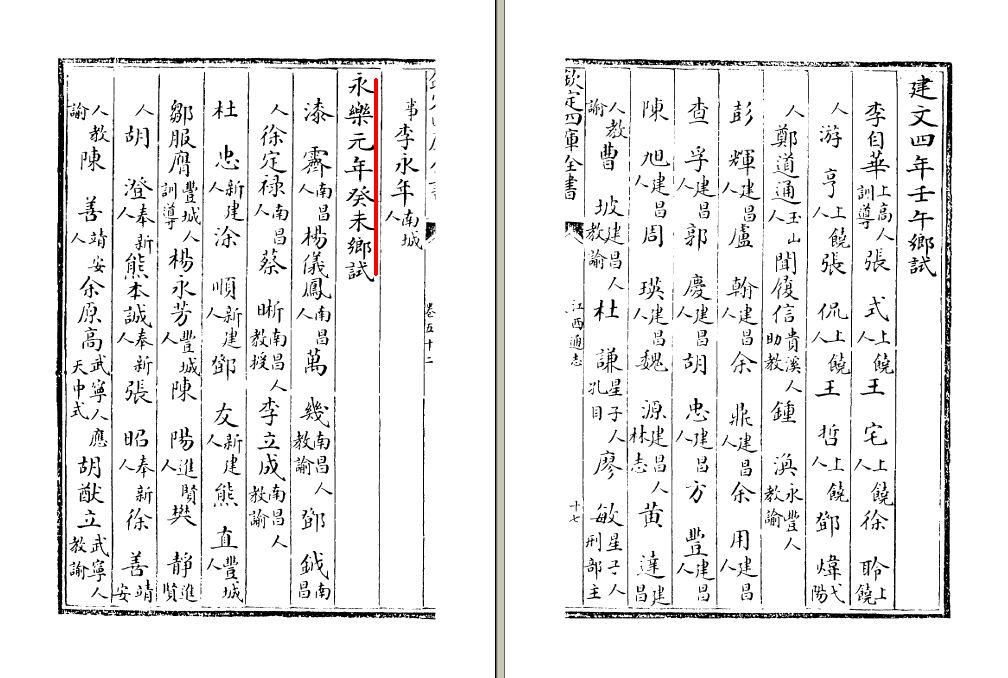 建文四年壬午鄉試
李自華上高人訓導張式上饒人王宅上饒人徐聆上饒
人游亨上饒人張侃上饒人王哲上饒人鄧煒弋陽
人鄭道通玉山人聞履信貴溪人助教鍾渙永豐人教諭
彭輝建昌人盧翰建昌人余鼎建昌人余用建昌人
查孚建昌人郭慶建昌人胡忠建昌人方豐建昌人
陳旭建昌人周瑛建昌人魏源建昌人林志黄達建昌
人教諭曹坡建昌人教諭杜謙星子人孔目廖敏星子人刑部主
欽定四庫全書
江西通志
十七
卷五十二
事李永年南城人
永樂元年癸未鄉試
漆霽南昌人楊儀鳳南昌人萬幾南昌人教諭鄧鉞南昌
人徐定祿南昌人蔡晣南昌人教授李立成南昌人教諭
杜忠新建人涂順新建人鄧友新建人熊直豐城人
鄒服膺豐城人訓導楊永芳豐城人陳陽進賢人樊靜進賢
人胡澄奉新人熊本誠奉新人張昭奉新人徐善靖安
人教諭陳善靖安人余原高武寧人應天中式胡猷立武寧人教諭